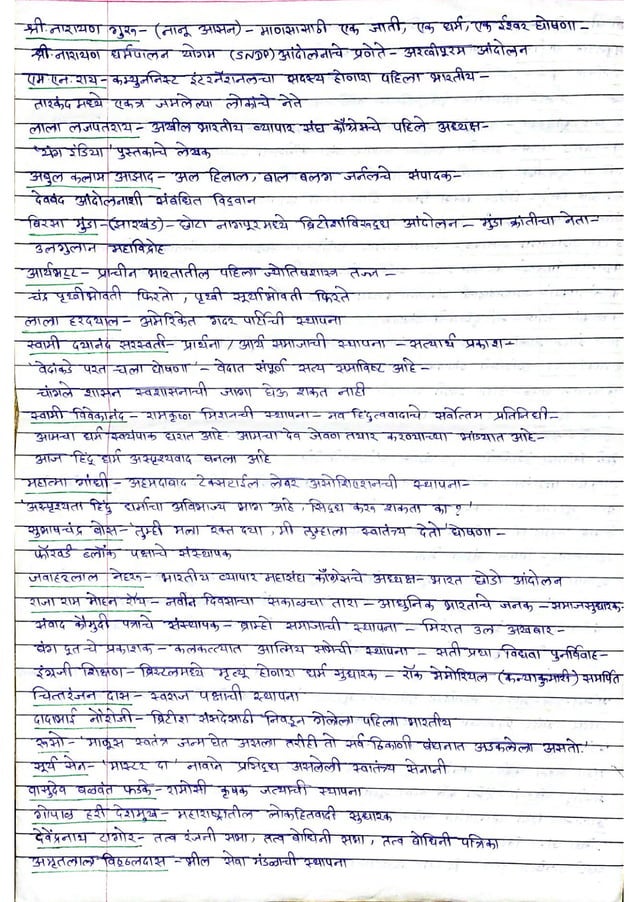 श्री.नारायण गुरू-(नानू आसन)- माणसासाठी एक जाती, एक धर्म, एक ईश्वर घोषणा-
श्री.नारायण धर्मपालन योगम (SNDP) आंदोलनाचे प्रणेते - अरवीपूरम आंदोलन
एम.एन.राय- कम्युननिस्ट इंटरनॅशनलचा सदस्य होणारा पहिला भारतीय-
ताश्कंद मध्ये एकत्र जमलेल्या लोकांचे नेते
लाला लजपतराय- अखील भारतीय व्यापार संघ काँग्रेसचे पहिले अध्यक्ष-
'यंग इंडिया' पुस्तकाचे लेखक
अबुल कलाम आझाद- अल हिलाल, बाल बलग जर्नलचे संपादक-
देवबंद आंदोलनाशी संबंधित विद्वान
बिरसा मुंडा-(झारखंड)- छोटा नागपूरमध्ये ब्रिटीशांविरूद्ध आंदोलन - मुंडा क्रांतीचा नेता-
उलगुलान महाविद्रोह
आर्यभट्ट- प्राचीन भारतातील पहिला ज्योतिषशास्त्र तज्ज्ञ-
चंद्र पृथ्वीभोवती फिरतो, पृथ्वी सूर्याभोवती फिरते
लाला हरदयाल- अमेरिकेत गदर पार्टीची स्थापना
स्वामी दयानंद सरस्वती- प्रार्थना / आर्य समाजाची स्थापना - सत्यार्थ प्रकाश-
'वेदांकडे परत चला घोषणा'- वेदात संपूर्ण सत्य समाविष्ट आहे-
चांगले शासन स्वशासनाची जागा घेऊ शकत नाही
स्वामी विवेकानंद- रामकृष्ण मिशनची स्थापना- नव हिंदुत्ववादाचे सर्वोत्तम प्रतिनिधी-
आमचा धर्म स्वयंपाक घरात आहे आमचा देव जेवण तयार करण्याच्या भांड्यात आहे-
आज हिंदू धर्म अस्पृश्यवाद बनला आहे
महात्मा गांधी - अहमदाबाद टेक्सटाईल लेबर असोशिएशनची स्थापना-
'अस्पृश्यता हिंदू धर्माचा अविभाज्य भाग आहे, सिद्ध करू शकता का?'
सुभाषचंद्र बोस- 'तुम्ही मला रक्त द्या, मी तुम्हाला स्वातंत्र्य देतो' घोषणा-
फॉरवर्ड ब्लॉक पक्षाचे संस्थापक
जवाहरलाल नेहरू- भारतीय व्यापार महासंघ काँग्रेसचे अध्यक्ष- भारत छोडो आंदोलन
राजा राम मोहन रॉय- नवीन दिवसाचा सकाळचा तारा - आधुनिक भारताचे जनक -समाजसुधारक-
संवाद कौमुदी पत्राचे संस्थापक - ब्राम्हो समाजाची स्थापना - मिरात उल अखबार-
बंग दूतचे प्रकाशक - कलकत्त्यात आत्मिय सभेची स्थापना - सती प्रथा, विधवा पुनर्विवाह-
इंग्रजी शिक्षण- ब्रिस्टलमध्ये मृत्यू होणारा धर्म सुधारक - रॉक मेमोरियल (कन्याकुमारी) समर्पित
चित्तरंजन दास- स्वराज पक्षाची स्थापना
दादाभाई नौरोजी- ब्रिटीश संसदेसाठी निवडून गेलेला पहिला भारतीय
रूसो- 'माणूस स्वतंत्र जन्म घेत असला तरीही तो सर्व ठिकाणी बंधनात अडकलेला असतो.'
सूर्य सेन- 'मास्टर दा' नावाने प्रसिद्ध असलेली स्वातंत्र्य सेनानी
वासुदेव बळवंत फडके- रामोसी कृषक जत्थाची स्थापना
गोपाळ हरी देशमुख- महाराष्ट्रातील लोकहितवादी सुधारक
देवेंद्रनाथ टागोर- तत्व रंजनी सभा, तत्व बोधिनी सभा, तत्व बोधिनी पत्रिका
अमृतलाल विठ्ठलदास - भील सेवा मंडळाची स्थापना